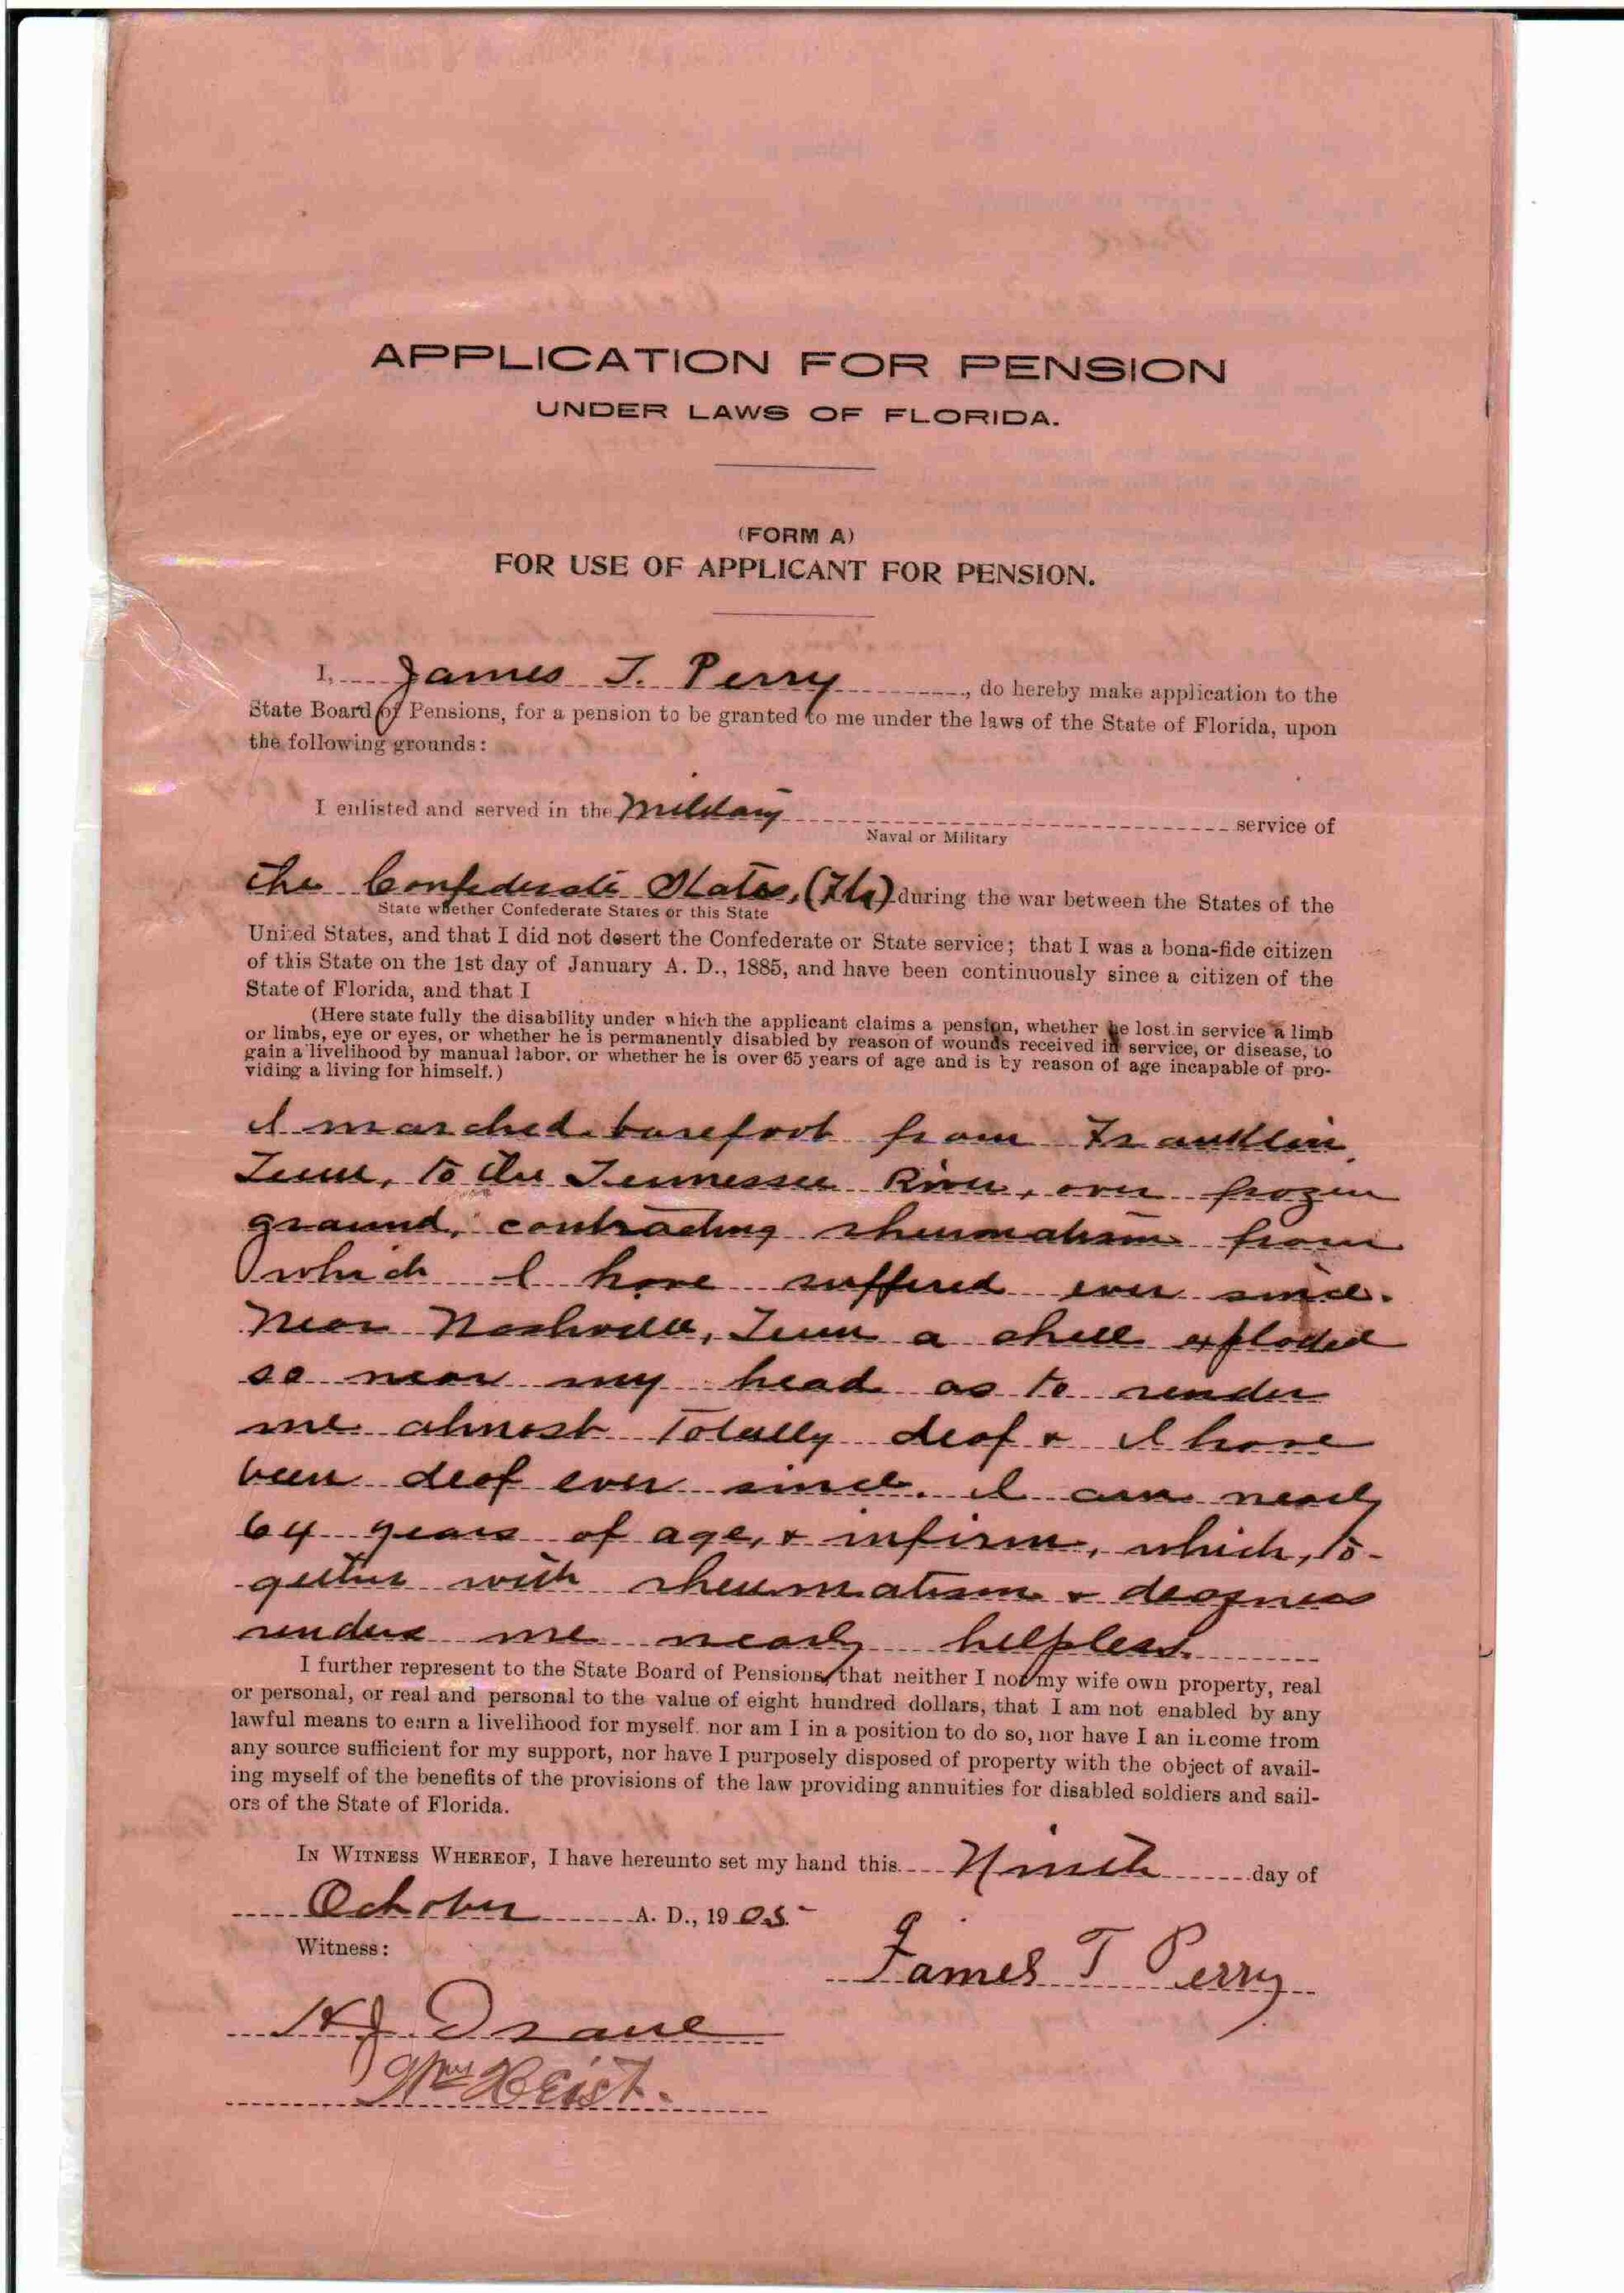 APPLICATION FOR PENSION
UNDER LAWS OF FLORIDA.
(FORM A)
FOR USE OF APPLICANT FOR PENSION.
I, James T. Perry, do hereby make application to the
State Board of Pensions, for a pension to be granted to me under the laws of the State of Florida, upon
the following grounds:
I enlisted and served in the Military service of
Naval or Military
the Confederate States, (Fla) during the war between the States of the
State whether Confederate States or this State
United States, and that I did not desert the Confederate or State service; that I was a bona-fide citizen
of this State on the 1st day of January A. D., 1885, and have been continuously since a citizen of the
State of Florida, and that I
(Here state fully the disability under which the applicant claims a pension, whether he lost in service a limb
or limbs, eye or eyes, or whether he is permanently disabled by reason of wounds received in service, or disease, to
gain a livelihood by manual labor, or whether he is over 65 years of age and is by reason of age incapable of pro-
viding a living for himself.)
I marched barefoot from Franklin
Tenn, to the Tennessee River, over frozen
ground, contracting rheumatism from
which I have suffered ever since.
Near Nashville, Tenn a shell exploded
so near my head as to render
me almost totally deaf & I have
been deaf ever since. I am nearly
64 years of age, & infirm, which, to-
gether with rheumatism & deafness
renders me nearly helpless.
I further represent to the State Board of Pensions, that neither I nor my wife own property, real
or personal, or real and personal to the value of eight hundred dollars, that I am not enabled by any
lawful means to earn a livelihood for myself. nor am I in a position to do so, nor have I an income from
any source sufficient for my support, nor have I purposely disposed of property with the object of avail-
ing myself of the benefits of the provisions of the law providing annuities for disabled soldiers and sail-
ors of the State of Florida.
IN WITNESS WHEREOF, I have hereunto set my hand this Ninth day of
October A. D., 1905.
Witness:
James T Perry
H J Drane
Wm Heist.